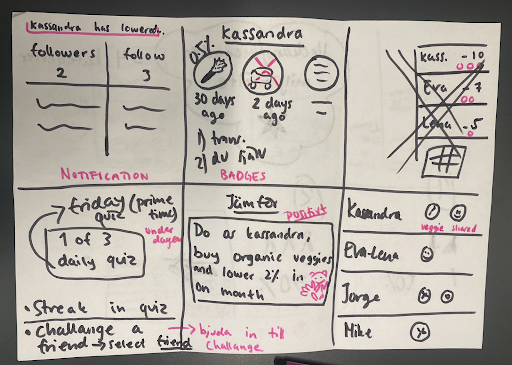 Kassandra has lowered..
followers
2
follow
3
NOTIFICATION
Kassandra
0.5%
30 days
ago
2 days
ago
1) trans.
2) du själv
BADGES
Kass. - 10
Eva - 7
Lena - 5
friday (prime
quiz time)
under
dagen
1 of 3
daily quiz
• Streak in quiz
• Challange a
friend → select friend
→ bjuda in till
challange
Jämför
positivt
Do as kassandra,
buy organic veggies
and lower 2% in
on month
Kassandra
veggie shared
Eva-Lena
Jorge
Mike